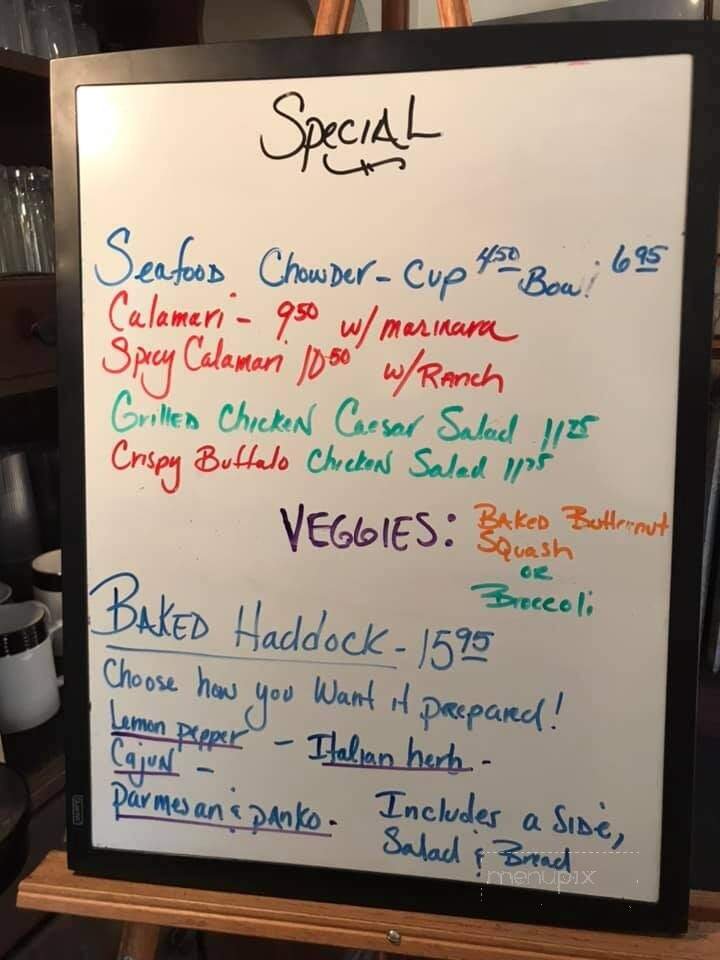 Special
Seafood Chowder - Cup 4.50 Bowl 6.95
Calamari - 9.50 w/ marinara
Spicy Calamari 10.50 w/ Ranch
Grilled Chicken Caesar Salad 11.25
Crispy Buffalo Chicken Salad 11.75
VEGGIES: Baked Butternut
Squash
or
Broccoli
Baked Haddock - 15.95
Choose how you want it prepared!
Lemon pepper - Italian herb -
Cajun -
Parmesan & panko.
Includes a side,
Salad & Bread
menupix